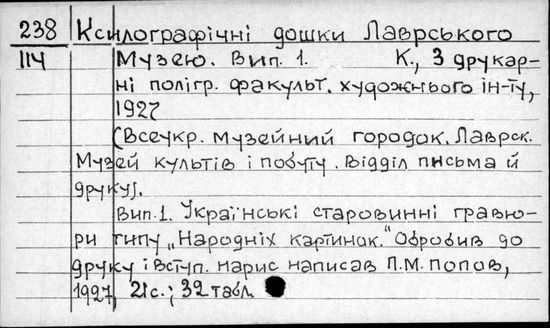 238 Ксилографічні дошки Лаврського
114 Музею. Вип. 1. К., З друкар-
ні полігр. факульт. художнього ін-ту,
1927
(Всеукр. музейний городок. Лаврск.
Музей культів і побуту. Відділ письма й
друку).
Вип. 1. Українські старовинні гравю-
ри типу „Народніх картинок." Обробив до
друку і вступ. нарис написав П.М. Попов,
1927, 21с.; 32 табл.